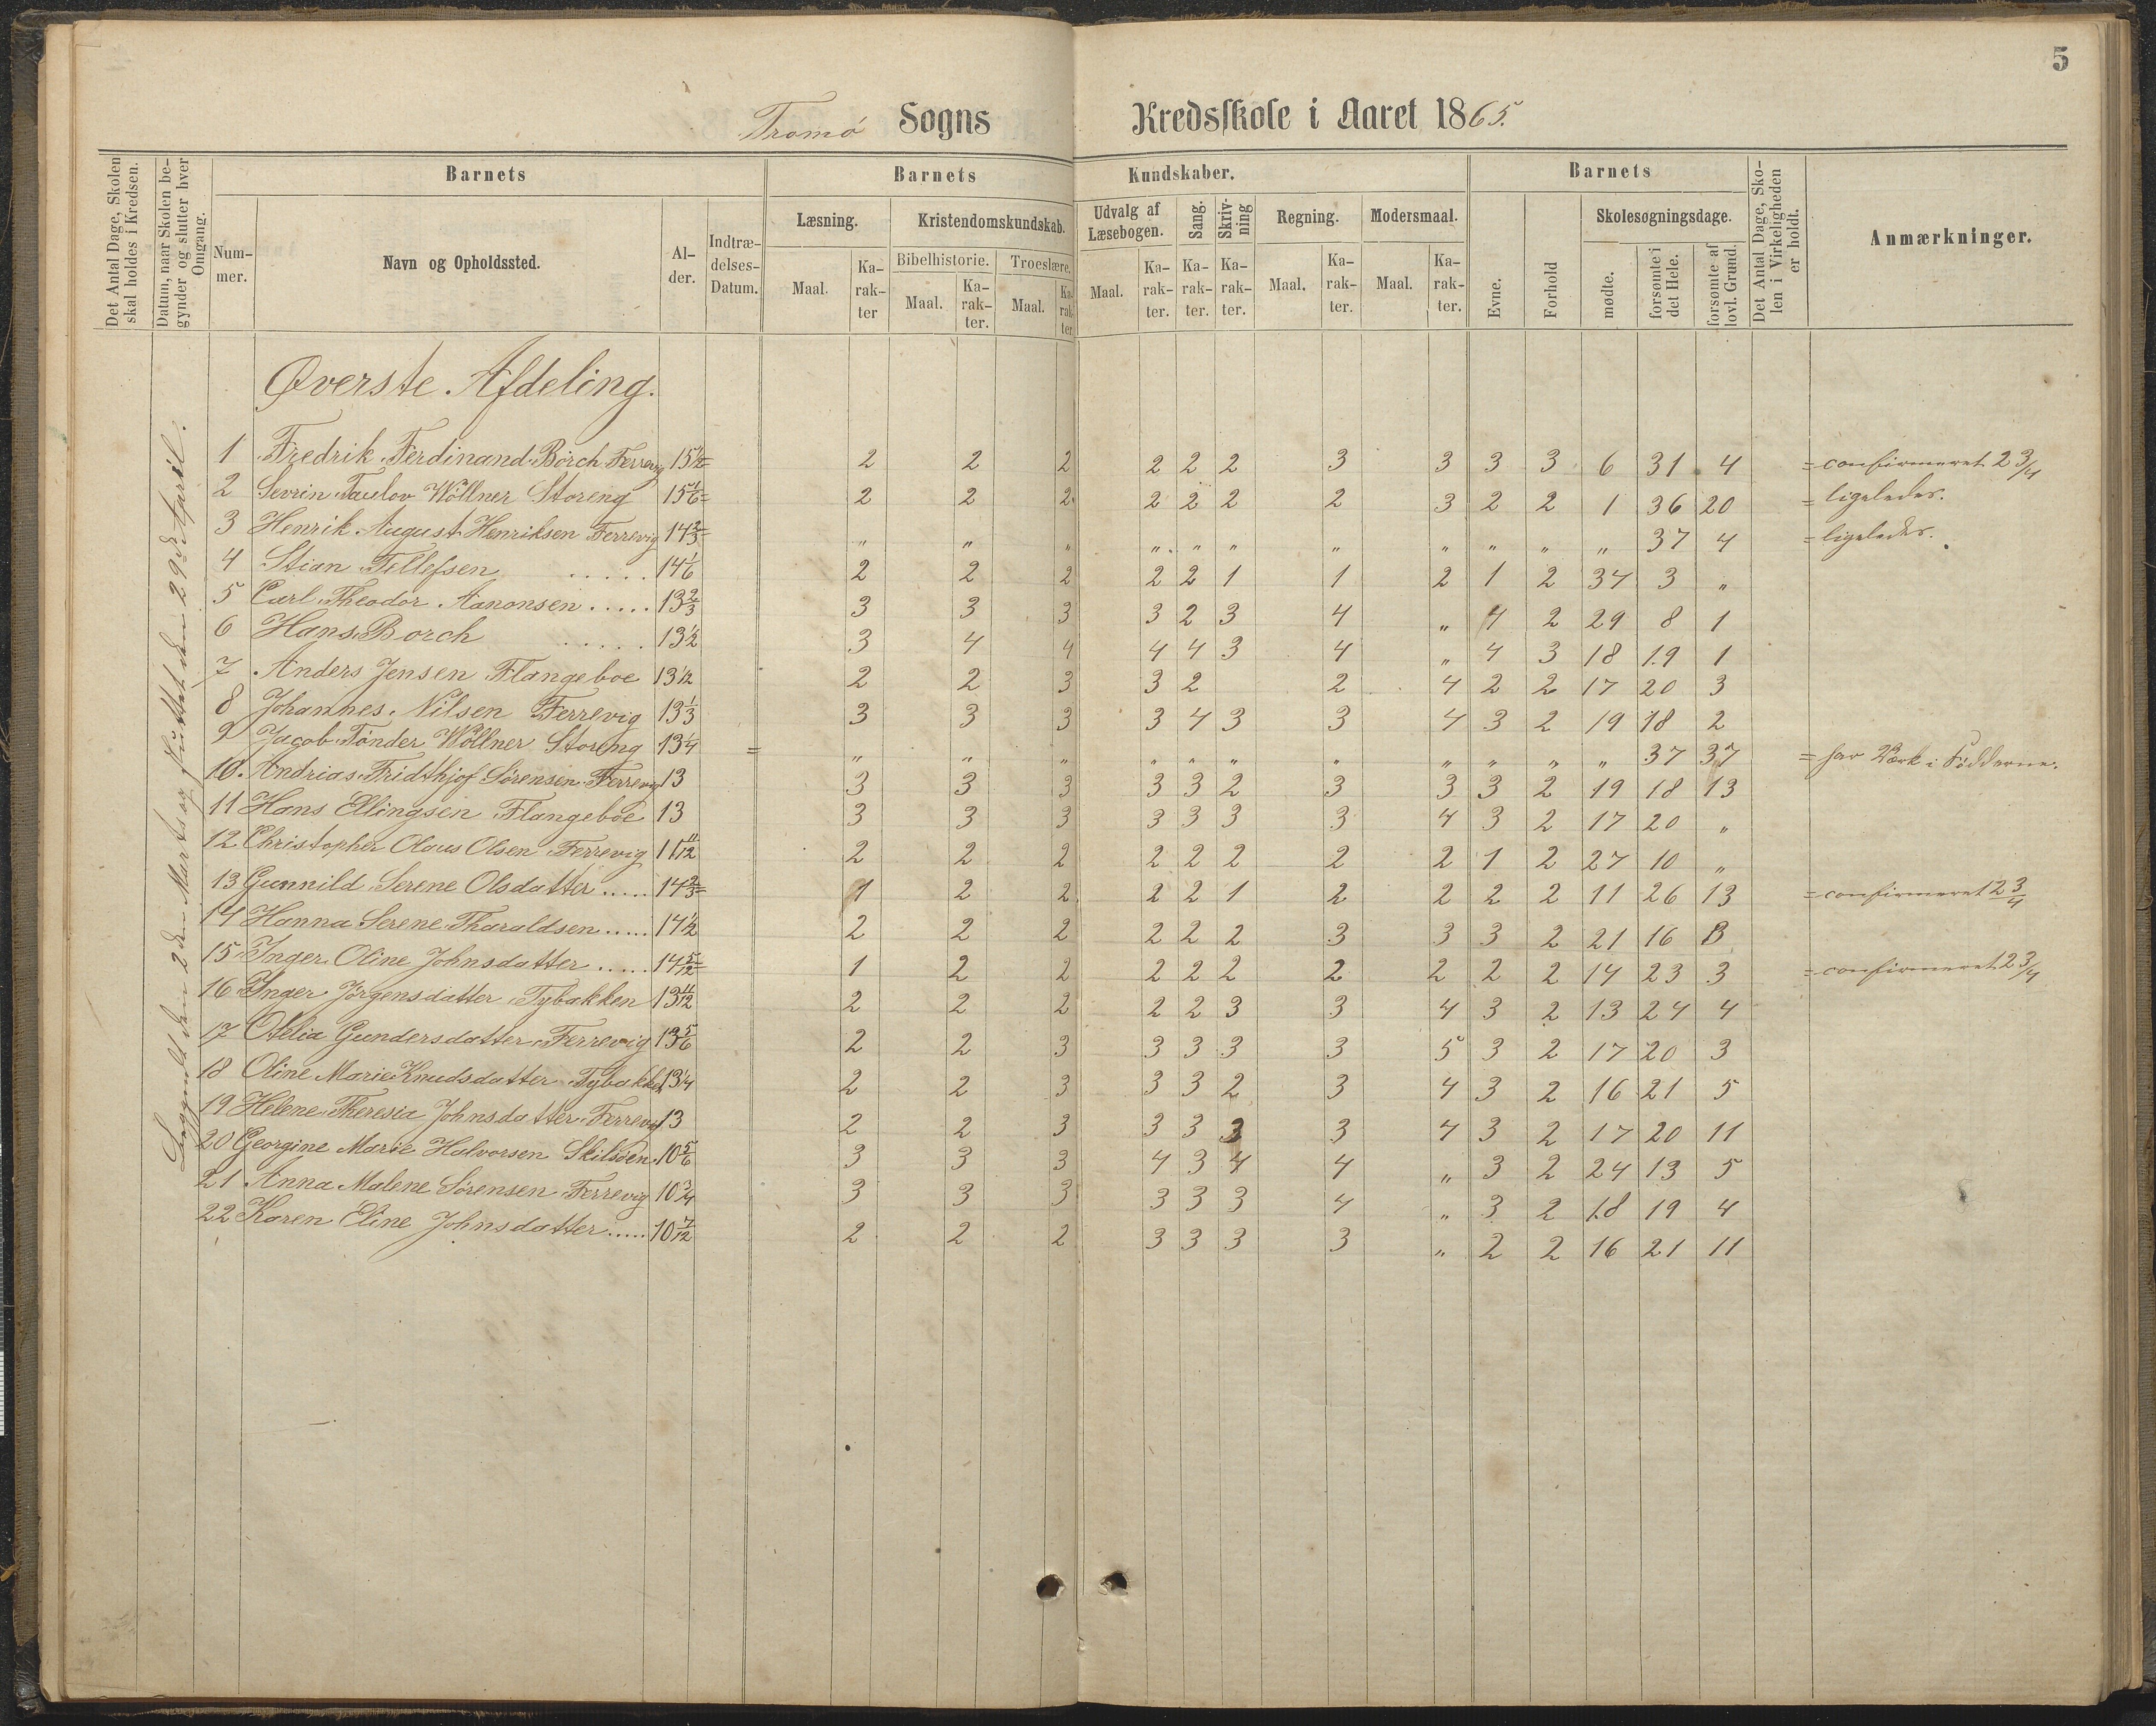 5
Tromö Sogns Kredsskole i Aaret 1865.
Det Antal Dage, Skolen skal holdes i Kredsen.
Datum, naar Skolen begynder og slutter hver Omgang.
Barnets
Barnets Kundskaber.
Barnets
Det Antal Dage, Skolen i Virkeligheden er holdt.
Anmærkninger.
Nummer.
Navn og Opholdssted.
Alder.
Indtrædelses-Datum.
Læsning.
Kristendomskundskab.
Udvalg af Læsebogen.
Sang.
Skrivning
Regning.
Modersmaal.
Evne.
Forhold
Skolesøgningsdage.
Bibelhistorie.
Troeslære.
Maal. Karakter
Maal. Karakter.
Maal. Karakter.
Maal. Karakter. Karakter. Karakter.
Maal. Karakter.
Maal. Karakter.
mødte.
forsømte i det Hele.
forsømte af lovl. Grund.
Begyndt den 2den Marts og sluttet den 29de April.
Øverste Afdeling.
1 Fredrik Ferdinand Börch Ferrevig 15 1/2= 2 2 2 2 2 2 3 3 3 3 6 31 4 = confirmeret 23/4
2 Sevrin Taulov Wöllner Storeng 15 1/6= 2 2 2 2 2 2 2 3 2 2 1 36 20 = ligeledes.
3 Henrik August Henriksen Ferrevig 14 2/3= " " " " " " " " " " " 37 4 = ligeledes.
4 Stian Tellefsen ..... 14 1/6 2 2 2 2 2 1 1 2 1 2 34 3 "
5 Carl Theodor Aanonsen ..... 13 2/3 3 3 3 3 2 3 4 " 4 2 29 8 1
6 Hans Borch ..... 13 1/2 3 4 4 4 4 3 4 " 4 3 18 19 1
7 Anders Jensen Flangeboe 13 1/2 2 2 3 3 2 2 4 2 2 17 20 3
8 Johannes Nilsen Ferrevig 13 1/3 3 3 3 3 4 3 3 4 3 2 19 18 2
9 Jacob Tönder Wöllner Storeng 13 1/4 = " " " " " " " " " " " 37 37 = har Værk i Födderne.
10. Andrias Fridthjof Sörensen Ferrevig 13 3 3 3 3 3 2 3 3 3 2 19 18 13
11 Hans Ellingsen Flangeboe 13 3 3 3 3 3 3 3 4 3 2 17 20 "
12 Christopher Olaus Olsen Ferrevig 11 11/12 2 2 2 2 2 2 2 2 1 2 27 10 "
13 Gunnild Serene Olsdatter ..... 14 2/3= 1 2 2 2 2 1 2 2 2 2 11 26 13 = confirmeret 23/4
14 Hanna Serene Tharaldsen ..... 14 1/2 2 2 2 2 2 2 3 3 3 2 21 16 3
15 Inger Oline Johnsdatter ..... 14 5/12= 1 2 2 2 2 2 2 2 2 2 14 23 3 = confirmeret 23/4
16 Inger Jörgensdatter Tybakken 13 11/12 2 2 2 2 2 3 3 4 3 2 13 24 4
17 Otelia Gundersdatter Ferrevig 13 5/6 2 2 3 3 3 3 3 5 3 2 17 20 3
18 Oline Marie Knudsdatter Tybakken 13 1/4 2 2 3 3 3 2 3 4 3 2 16 21 5
19 Helene Theresia Johnsdatter Ferrevig 13 2 2 3 3 3 3 3 4 3 2 17 20 11
20 Georgine Marie Halvorsen Skilsöen 10 5/6 3 3 3 4 3 4 4 " 3 2 24 13 5
21 Anna Malene Sörensen Ferrevig 10 3/4 3 3 3 3 3 3 4 " 3 2 18 19 4
22 Karen Eline Johnsdatter ..... 10 7/12 2 2 2 3 3 3 3 " 2 2 16 21 11